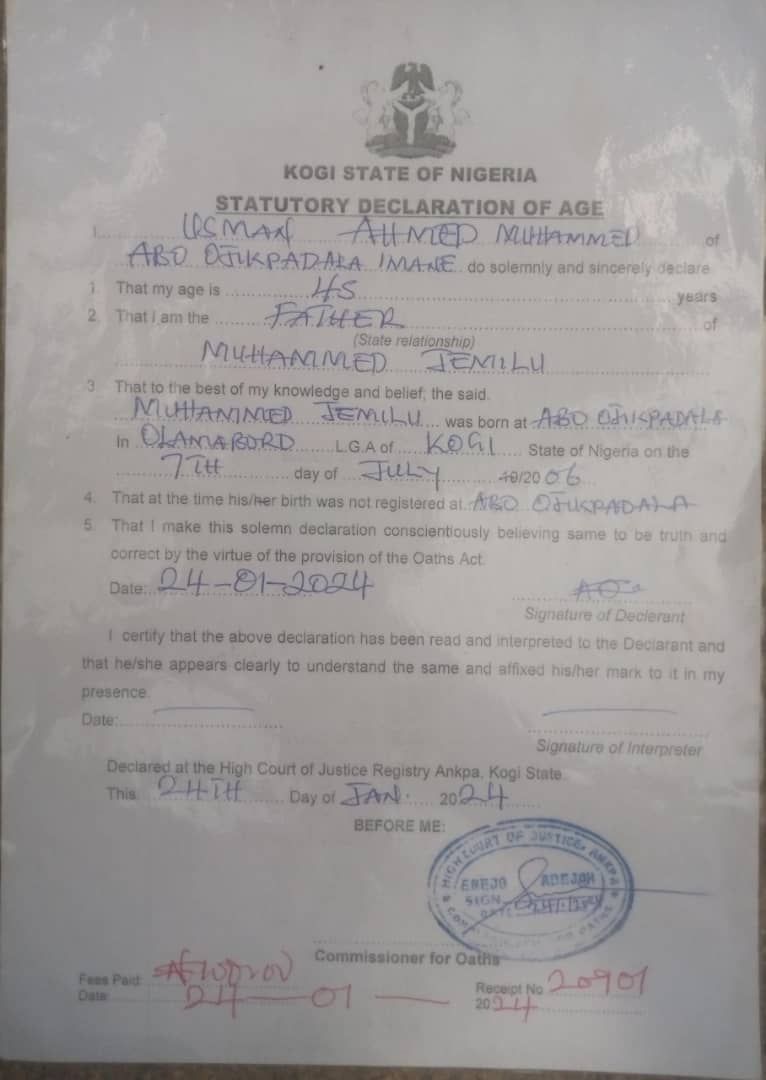 KOGI STATE OF NIGERIA
STATUTORY DECLARATION OF AGE
I USMAN AHMED MUHAMMED of
ABO OJUKPADALA IMANE do solemnly and sincerely declare
1. That my age is 45 years
2. That I am the FATHER of
(State relationship)
MUHAMMED JEMILU
3. That to the best of my knowledge and belief; the said.
MUHAMMED JEMILU was born at ABO OJUKPADALA
In OLAMABORO L.G.A of KOGI State of Nigeria on the
7TH day of JULY 19/2006
4. That at the time his/her birth was not registered at ABO OJUKPADALA
5. That I make this solemn declaration conscientiously believing same to be truth and
correct by the virtue of the provision of the Oaths Act.
Date: 24-01-2024
Signature of Declerant
I certify that the above declaration has been read and interpreted to the Declarant and
that he/she appears clearly to understand the same and affixed his/her mark to it in my
presence.
Date:
Signature of Interpreter
Declared at the High Court of Justice Registry Ankpa, Kogi State.
This 24TH Day of JAN. 2024
BEFORE ME:
HIGH COURT OF JUSTICE, ANKPA
EREJO ADEJOH
SIGN
DATE
Commissioner for Oaths
Fees Paid:
Receipt No 20901
Date: 24-01- 2024